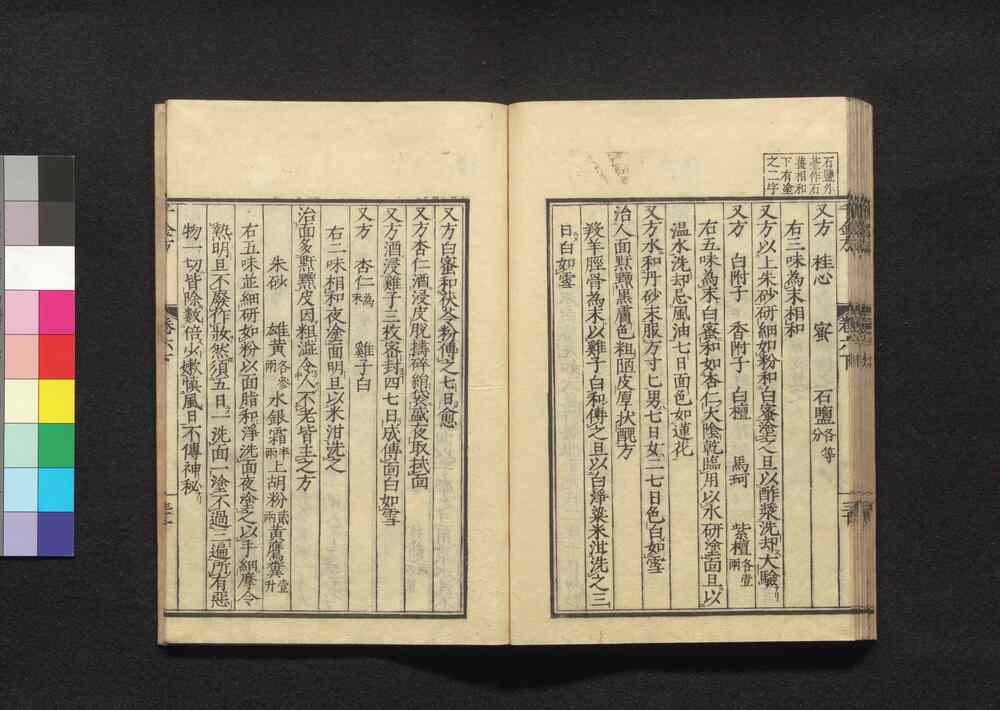 石鹽外
臺作石
蓋相和
下有塗
之二字
又方 桂心 蜜 石鹽各等分
右三味為末相和
又方以上朱砂研細如粉和白蜜塗之旦以酢漿洗却大驗
又方 白附子 香附子 白檀 馬珂 紫檀各壹兩
右五味為末白蜜和如杏仁大陰乾臨用以水研塗面旦以
温水洗却忌風油七日面色如蓮花
又方水和丹砂末服方寸匕男七日女二七日色白如雪
治人面䵟䵳黑膚色粗陋皮厚狀醜方
羖羊脛骨為末以雞子白和傅之旦以白粱米泔洗之三
日白如雪
又方白蜜和茯苓粉傅之七日愈
又方杏仁酒浸皮脫擣碎絹袋盛夜取拭面
又方酒浸雞子三枚密封四七日成傅面白如雪
又方 杏仁為末 雞子白
右二味相和夜塗面明旦以米泔洗之
治面多䵟䵳皮因粗澁令人不老皆主之方
朱砂 雄黃各參兩 水銀霜半兩 上胡粉貳兩 黃鷹糞壹升
右五味並細研如粉以面脂和淨洗面夜塗之以手細摩令
熱明旦不廢作妝然須五日一洗面一塗不過三遍所有惡
物一切皆除數倍少嫩慎風日不傳神秘
千金方
卷六下